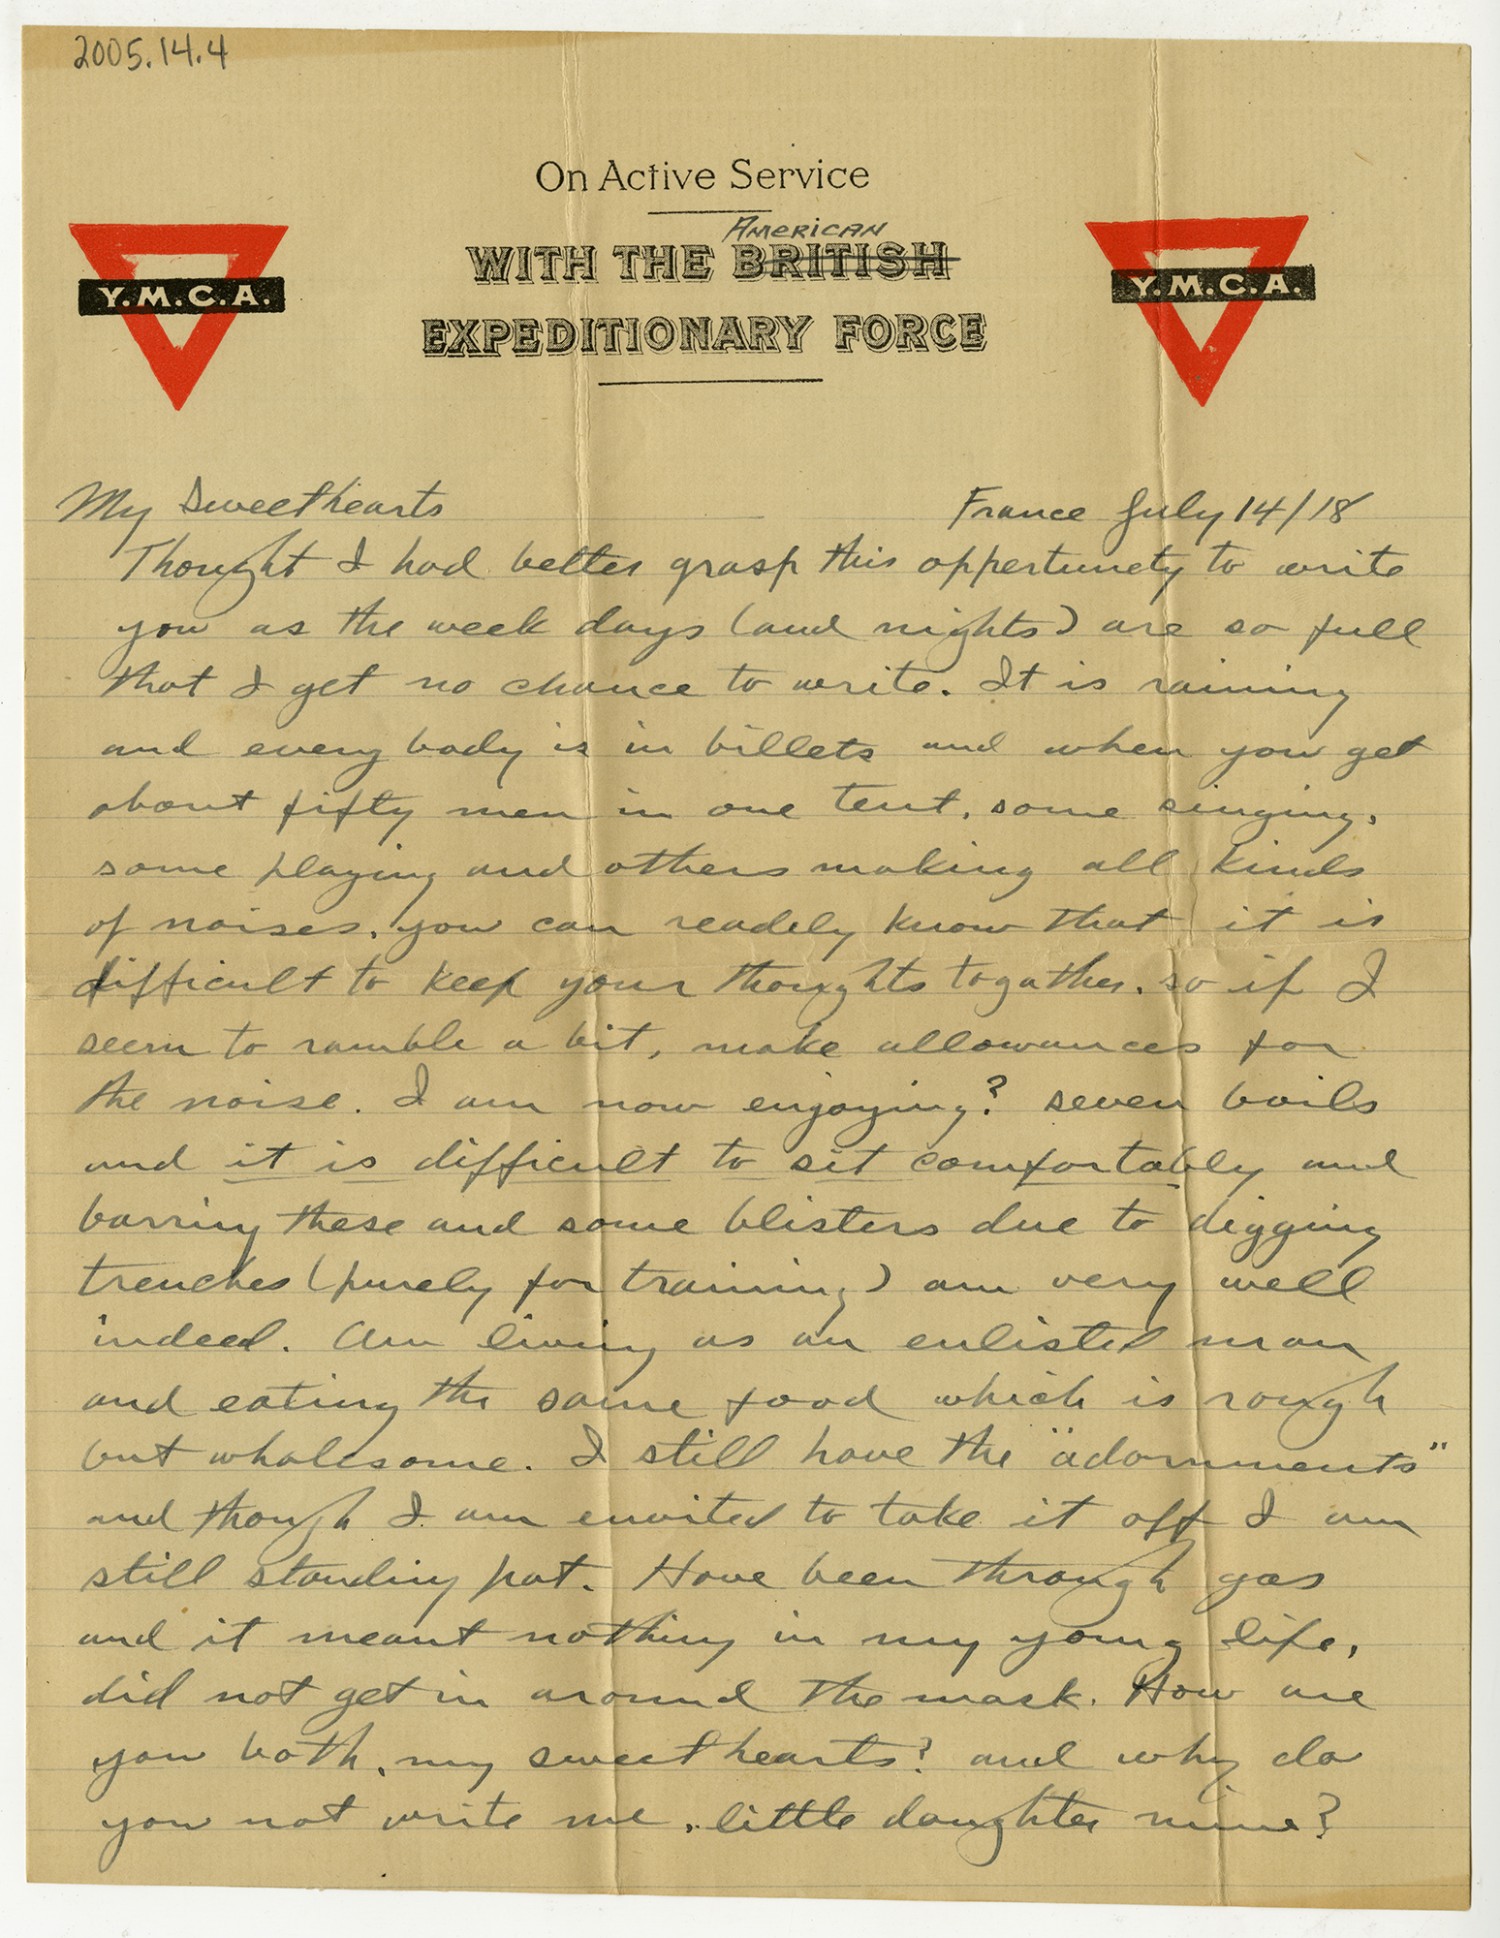 2005.14.4
On Active Service
American
WITH THE BRITISH
EXPEDITIONARY FORCE
Y.M.C.A.
Y.M.C.A.
My Sweethearts
France July 14/18
Thought I had better grasp this oppertunety to write
you as the week days (and nights) are so full
that I get no chance to write. It is raining
and every body is in billets and when you get
about fifty men in one tent, some singing,
some playing and others making all kinds
of noises, you can readely know that it is
difficult to keep your thoughts togather. so if I
seem to ramble a bit, make allowances for
the noise. I am now enjoying? seven boils
and it is difficult to sit comfortably and
barring these and some blisters due to digging
trenches (purely for training) am very well
indeed. Am living as an enlisted man
and eating the same food which is rough
but wholesome. I still have the "adornments"
and though I am envited to take it off I am
still standing pat. Have been through gas
and it meant nothing in my young life,
did not get in around the mask. How are
you both, my sweethearts? and why do
you not write me, little daughter mine?